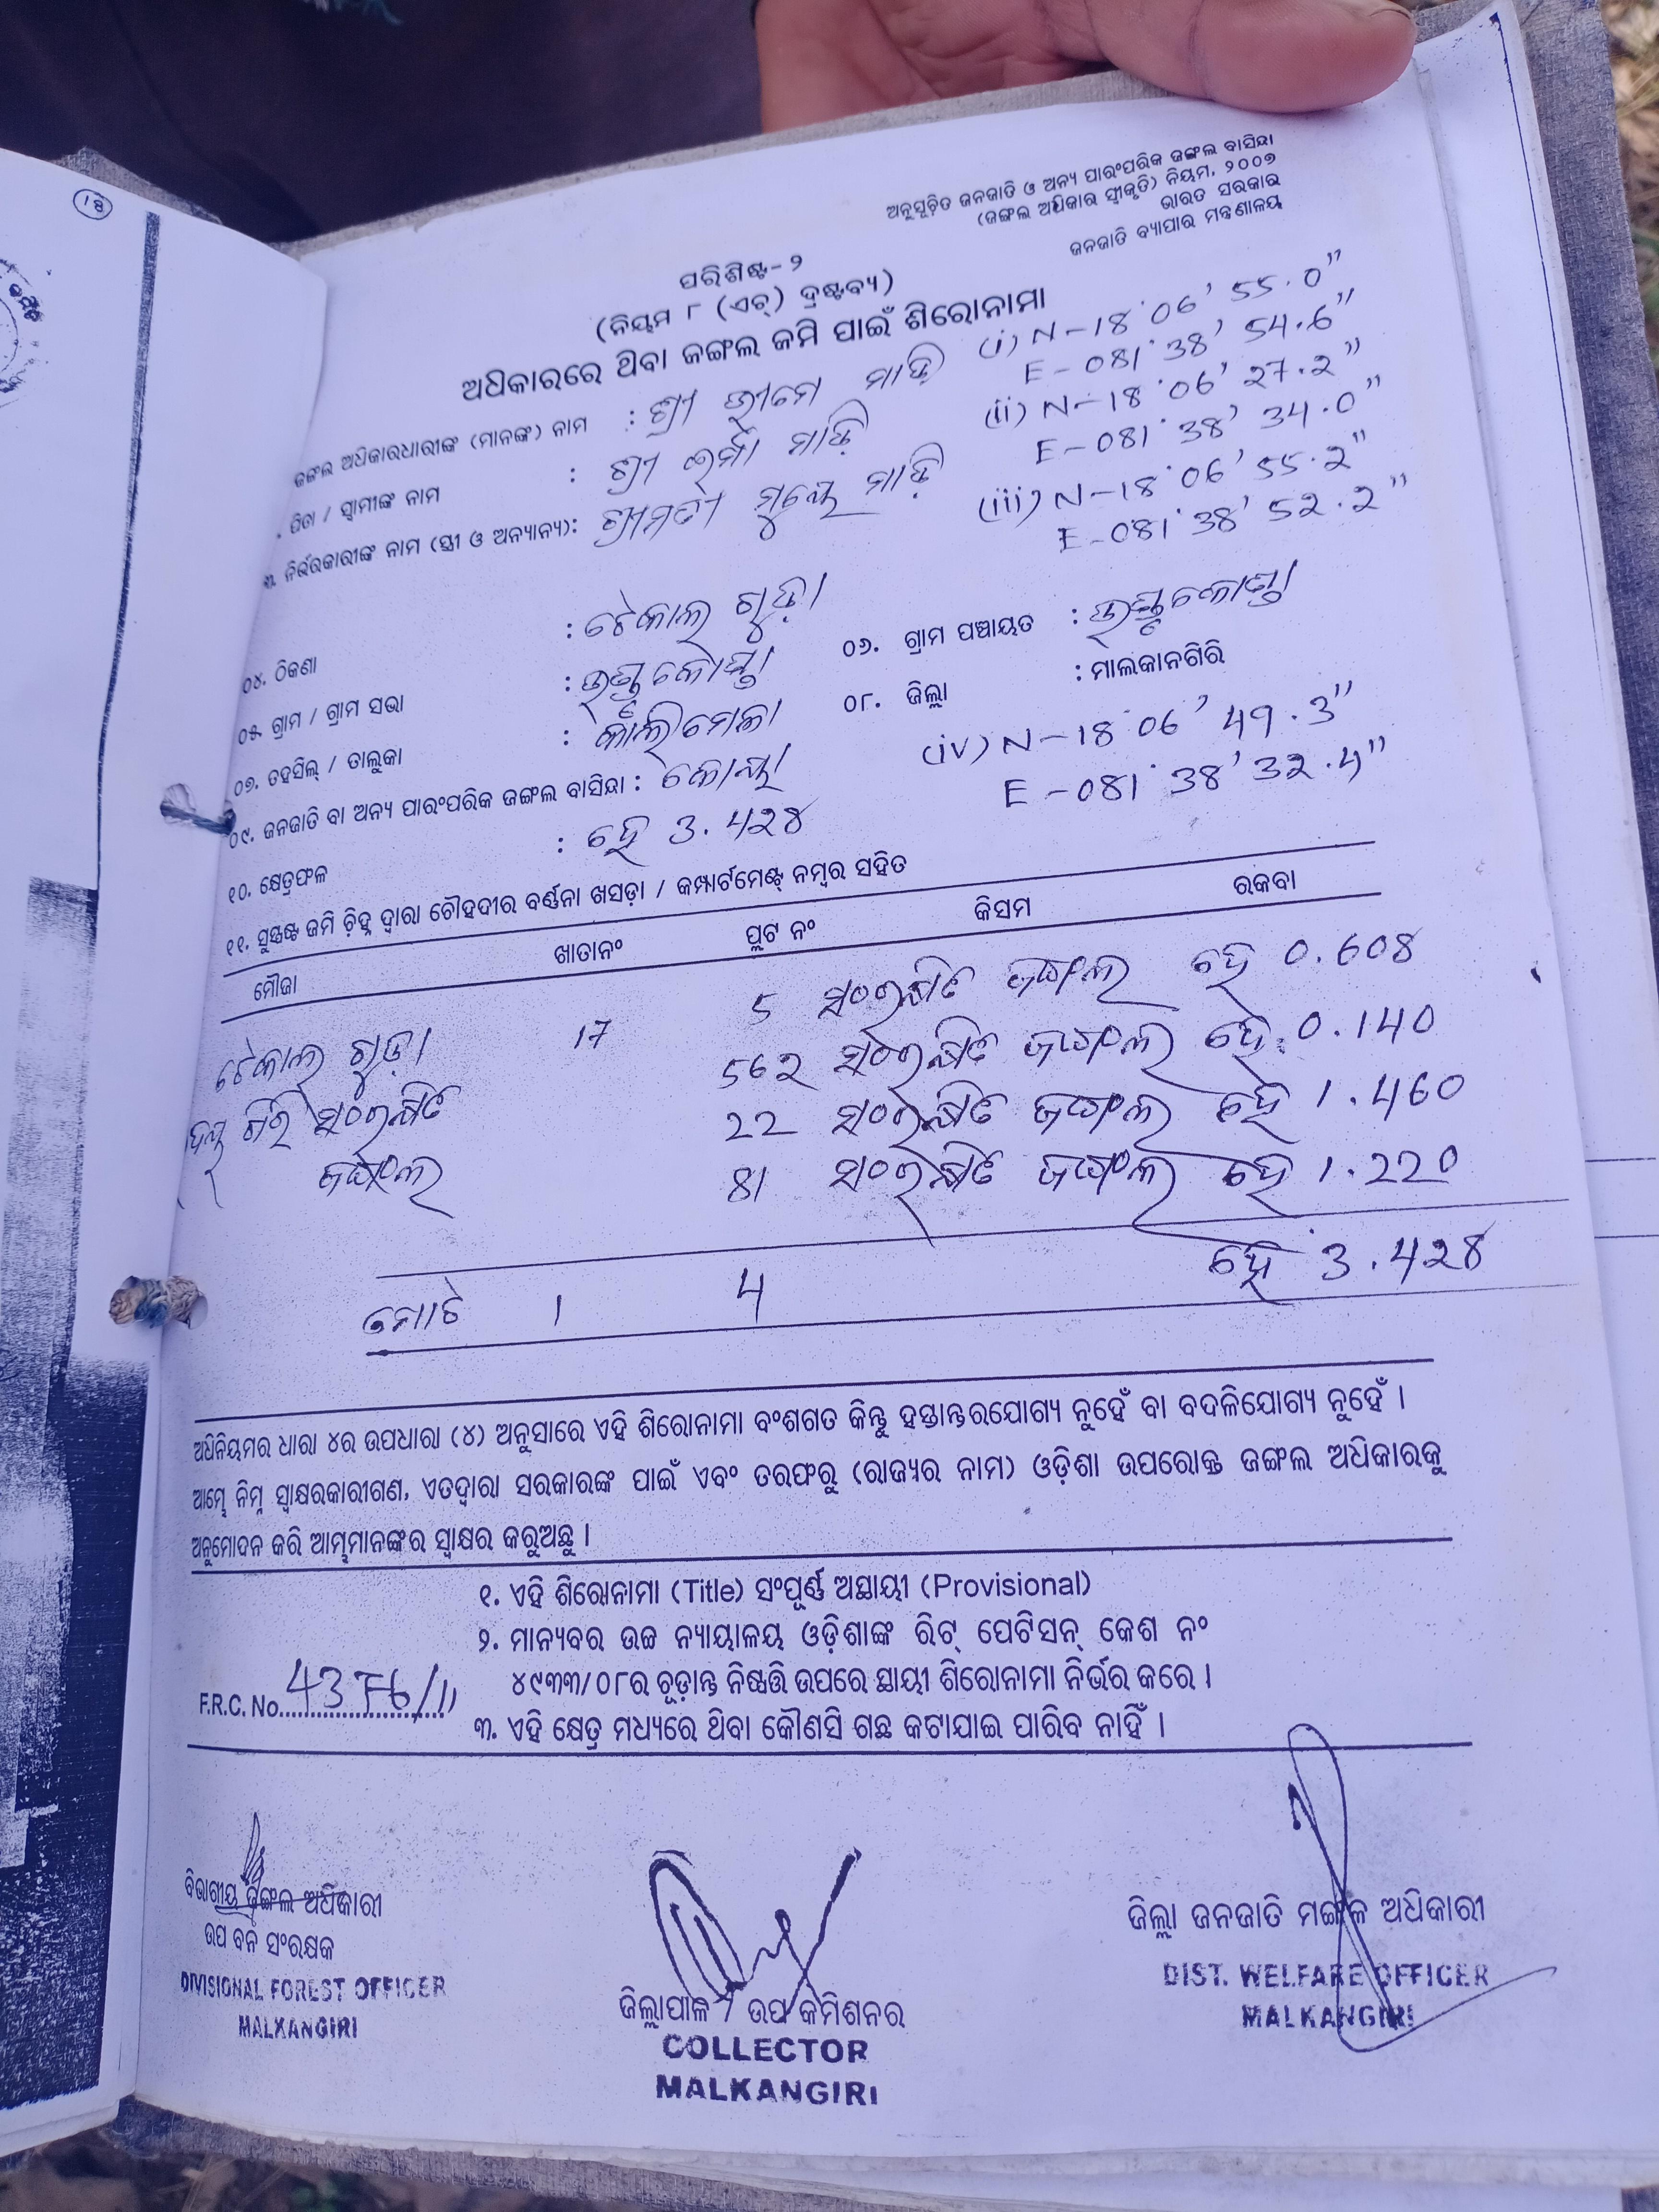 ଅନୁସୂଚିତ ଜନଜାତି ଓ ଅନ୍ୟ ପାରଂପରିକ ଜଙ୍ଗଲ ବାସିନ୍ଦା
(ଜଙ୍ଗଲ ଅଧିକାର ସ୍ୱୀକୃତି) ନିୟମ, ୨୦୦୭
ଭାରତ ସରକାର
ଜନଜାତି ବ୍ୟାପାର ମନ୍ତ୍ରଣାଳୟ
ପରିଶିଷ୍ଟ-୨
(ନିୟମ ୮ (ଏଚ୍) ଦ୍ରଷ୍ଟବ୍ୟ)
ଅଧିକାରରେ ଥିବା ଜଙ୍ଗଲ ଜମି ପାଇଁ ଶିରୋନାମା
(i) N-18°06'55.0"
E-081°38'54.6"
ଜଙ୍ଗଲ ଅଧିକାରଧାରୀଙ୍କ (ମାନଙ୍କ) ନାମ : ଶ୍ରୀ ଭୀମେ ମାଡ଼ି
(ii) N-18°06'27.2"
E-081°38'34.0"
ପିତା / ସ୍ୱାମୀଙ୍କ ନାମ : ଶ୍ରୀ ମାଡ଼ି
(iii) N-18°06'55.2"
E-081°38'52.2"
୩. ନିର୍ଭରକାରୀଙ୍କ ନାମ (ସ୍ତ୍ରୀ ଓ ଅନ୍ୟାନ୍ୟ): ଶ୍ରୀମତୀ ମାଡ଼ି
୦୪. ଠିକଣା : ଟେକାଲ ଗୁଡ଼ା
୦୫. ଗ୍ରାମ / ଗ୍ରାମ ସଭା :
୦୬. ଗ୍ରାମ ପଞ୍ଚାୟତ :
୦୭. ତହସିଲ୍ / ତାଲୁକା : କାଲିମେଳା
୦୮. ଜିଲ୍ଲା : ମାଲକାନଗିରି
୦୯. ଜନଜାତି ବା ଅନ୍ୟ ପାରଂପରିକ ଜଙ୍ଗଲ ବାସିନ୍ଦା : କୋୟା
(iv) N-18°06'49.3"
E-081°38'32.4"
୧୦. କ୍ଷେତ୍ରଫଳ : ହେ 3.428
୧୧. ସୁସ୍ପଷ୍ଟ ଜମି ଚିହ୍ନ ଦ୍ୱାରା ଚୌହଦୀର ବର୍ଣ୍ଣନା ଖସଡ଼ା / କମ୍ପାର୍ଟମେଣ୍ଟ୍ ନମ୍ବର ସହିତ
ମୌଜା ଖାତାନଂ ପ୍ଲଟ ନଂ କିସମ ରକବା
ଟେକାଲ ଗୁଡ଼ା 17 5 ସଂରକ୍ଷିତ ଜଙ୍ଗଲ ହେ 0.608
ଗିରି ସଂରକ୍ଷିତ 562 ସଂରକ୍ଷିତ ଜଙ୍ଗଲ ହେ 0.140
ଜଙ୍ଗଲ 22 ସଂରକ୍ଷିତ ଜଙ୍ଗଲ ହେ 1.460
81 ସଂରକ୍ଷିତ ଜଙ୍ଗଲ ହେ 1.220
ମୋଟ 1 4 ହେ 3.428
ଅଧିନିୟମର ଧାରା ୪ର ଉପଧାରା (୪) ଅନୁସାରେ ଏହି ଶିରୋନାମା ବଂଶଗତ କିନ୍ତୁ ହସ୍ତାନ୍ତରଯୋଗ୍ୟ ନୁହେଁ ବା ବଦଳିଯୋଗ୍ୟ ନୁହେଁ ।
ଆମ୍ଭେ ନିମ୍ନ ସ୍ୱାକ୍ଷରକାରୀଗଣ, ଏତଦ୍ୱାରା ସରକାରଙ୍କ ପାଇଁ ଏବଂ ତରଫରୁ (ରାଜ୍ୟର ନାମ) ଓଡ଼ିଶା ଉପରୋକ୍ତ ଜଙ୍ଗଲ ଅଧିକାରକୁ
ଅନୁମୋଦନ କରି ଆମ୍ଭମାନଙ୍କର ସ୍ୱାକ୍ଷର କରୁଅଛୁ ।
୧. ଏହି ଶିରୋନାମା (Title) ସଂପୂର୍ଣ୍ଣ ଅସ୍ଥାୟୀ (Provisional)
୨. ମାନ୍ୟବର ଉଚ୍ଚ ନ୍ୟାୟାଳୟ ଓଡ଼ିଶାଙ୍କ ରିଟ୍ ପେଟିସନ୍ କେଶ ନଂ
୪୯୩୩/୦୮ର ଚୂଡ଼ାନ୍ତ ନିଷ୍ପତ୍ତି ଉପରେ ସ୍ଥାୟୀ ଶିରୋନାମା ନିର୍ଭର କରେ ।
F.R.C. No.
୩. ଏହି କ୍ଷେତ୍ର ମଧ୍ୟରେ ଥିବା କୌଣସି ଗଛ କଟାଯାଇ ପାରିବ ନାହିଁ ।
ବିଭାଗୀୟ ଜଙ୍ଗଲ ଅଧିକାରୀ
ଉପ ବନ ସଂରକ୍ଷକ
DIVISIONAL FOREST OFFICER
MALKANGIRI
ଜିଲ୍ଲାପାଳ / ଉପ କମିଶନର
COLLECTOR
MALKANGIRI
ଜିଲ୍ଲା ଜନଜାତି ମଙ୍ଗଳ ଅଧିକାରୀ
DIST. WELFARE OFFICER
MALKANGIRI